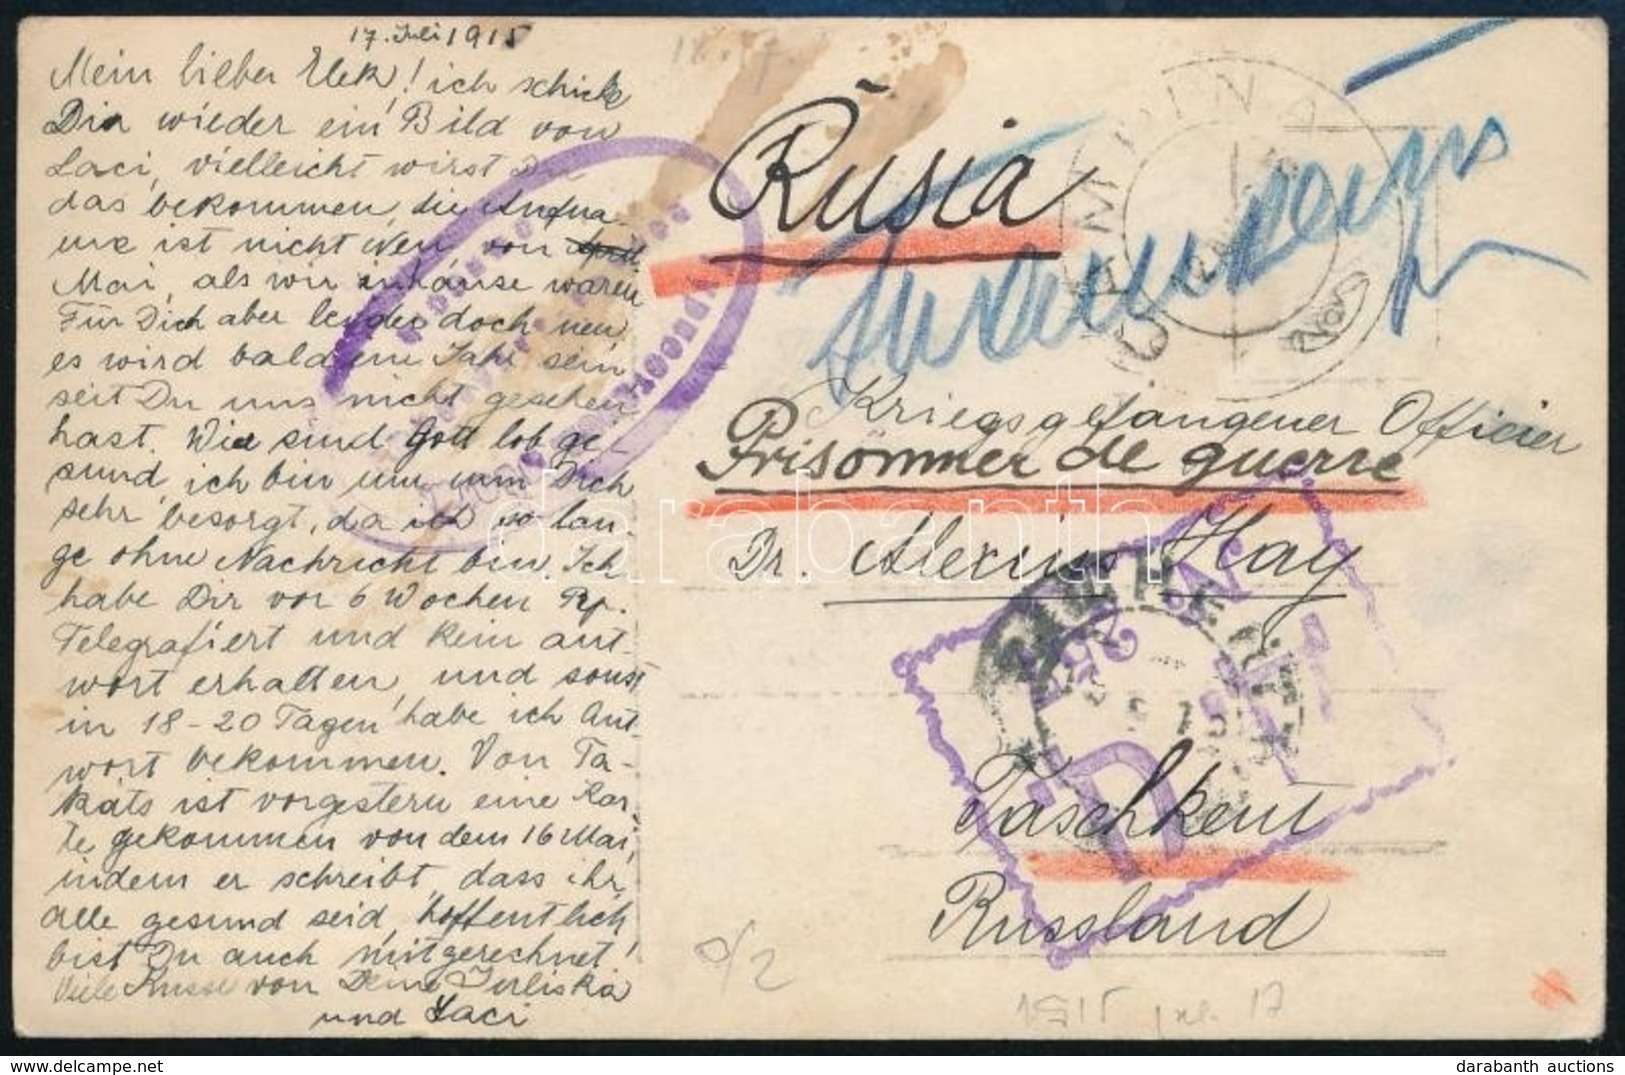 17. Juli 1915
Mein lieber Elek! ich schicke
Dir wieder ein Bild von
Laci, vielleicht wirst Du
das bekommen, die Aufna-
me ist nicht Neu von April
Mai, als wir zuhause waren
Für Dich aber leider doch neu,
es wird bald ein Jahr sein
seit Du uns nicht gesehen
hast. Wir sind Gott lob ge-
sund, ich bin nur um Dich
sehr besorgt, da ich so lan-
ge ohne Nachricht bin. Ich
habe Dir vor 6 Wochen Rp.
Telegrafiert und kein ant-
wort erhalten, und sonst
in 18-20 Tagen habe ich Ant-
wort bekommen. Von Ta-
kats ist vorgestern eine Kar-
te gekommen von dem 16 Mai,
indem er schreibt, dass ihr
alle gesund seid, hoffentlich
bist Du auch mitgerechnet!
Viele Küsse von Deine Juliska
und Laci
Rusia
Kriegsgefangener Officier
Prisonnier de guerre
Dr. Alexius Hay
Taschkent
Russland
2/2
1915 jul. 17
darabanth
darabanth auctions